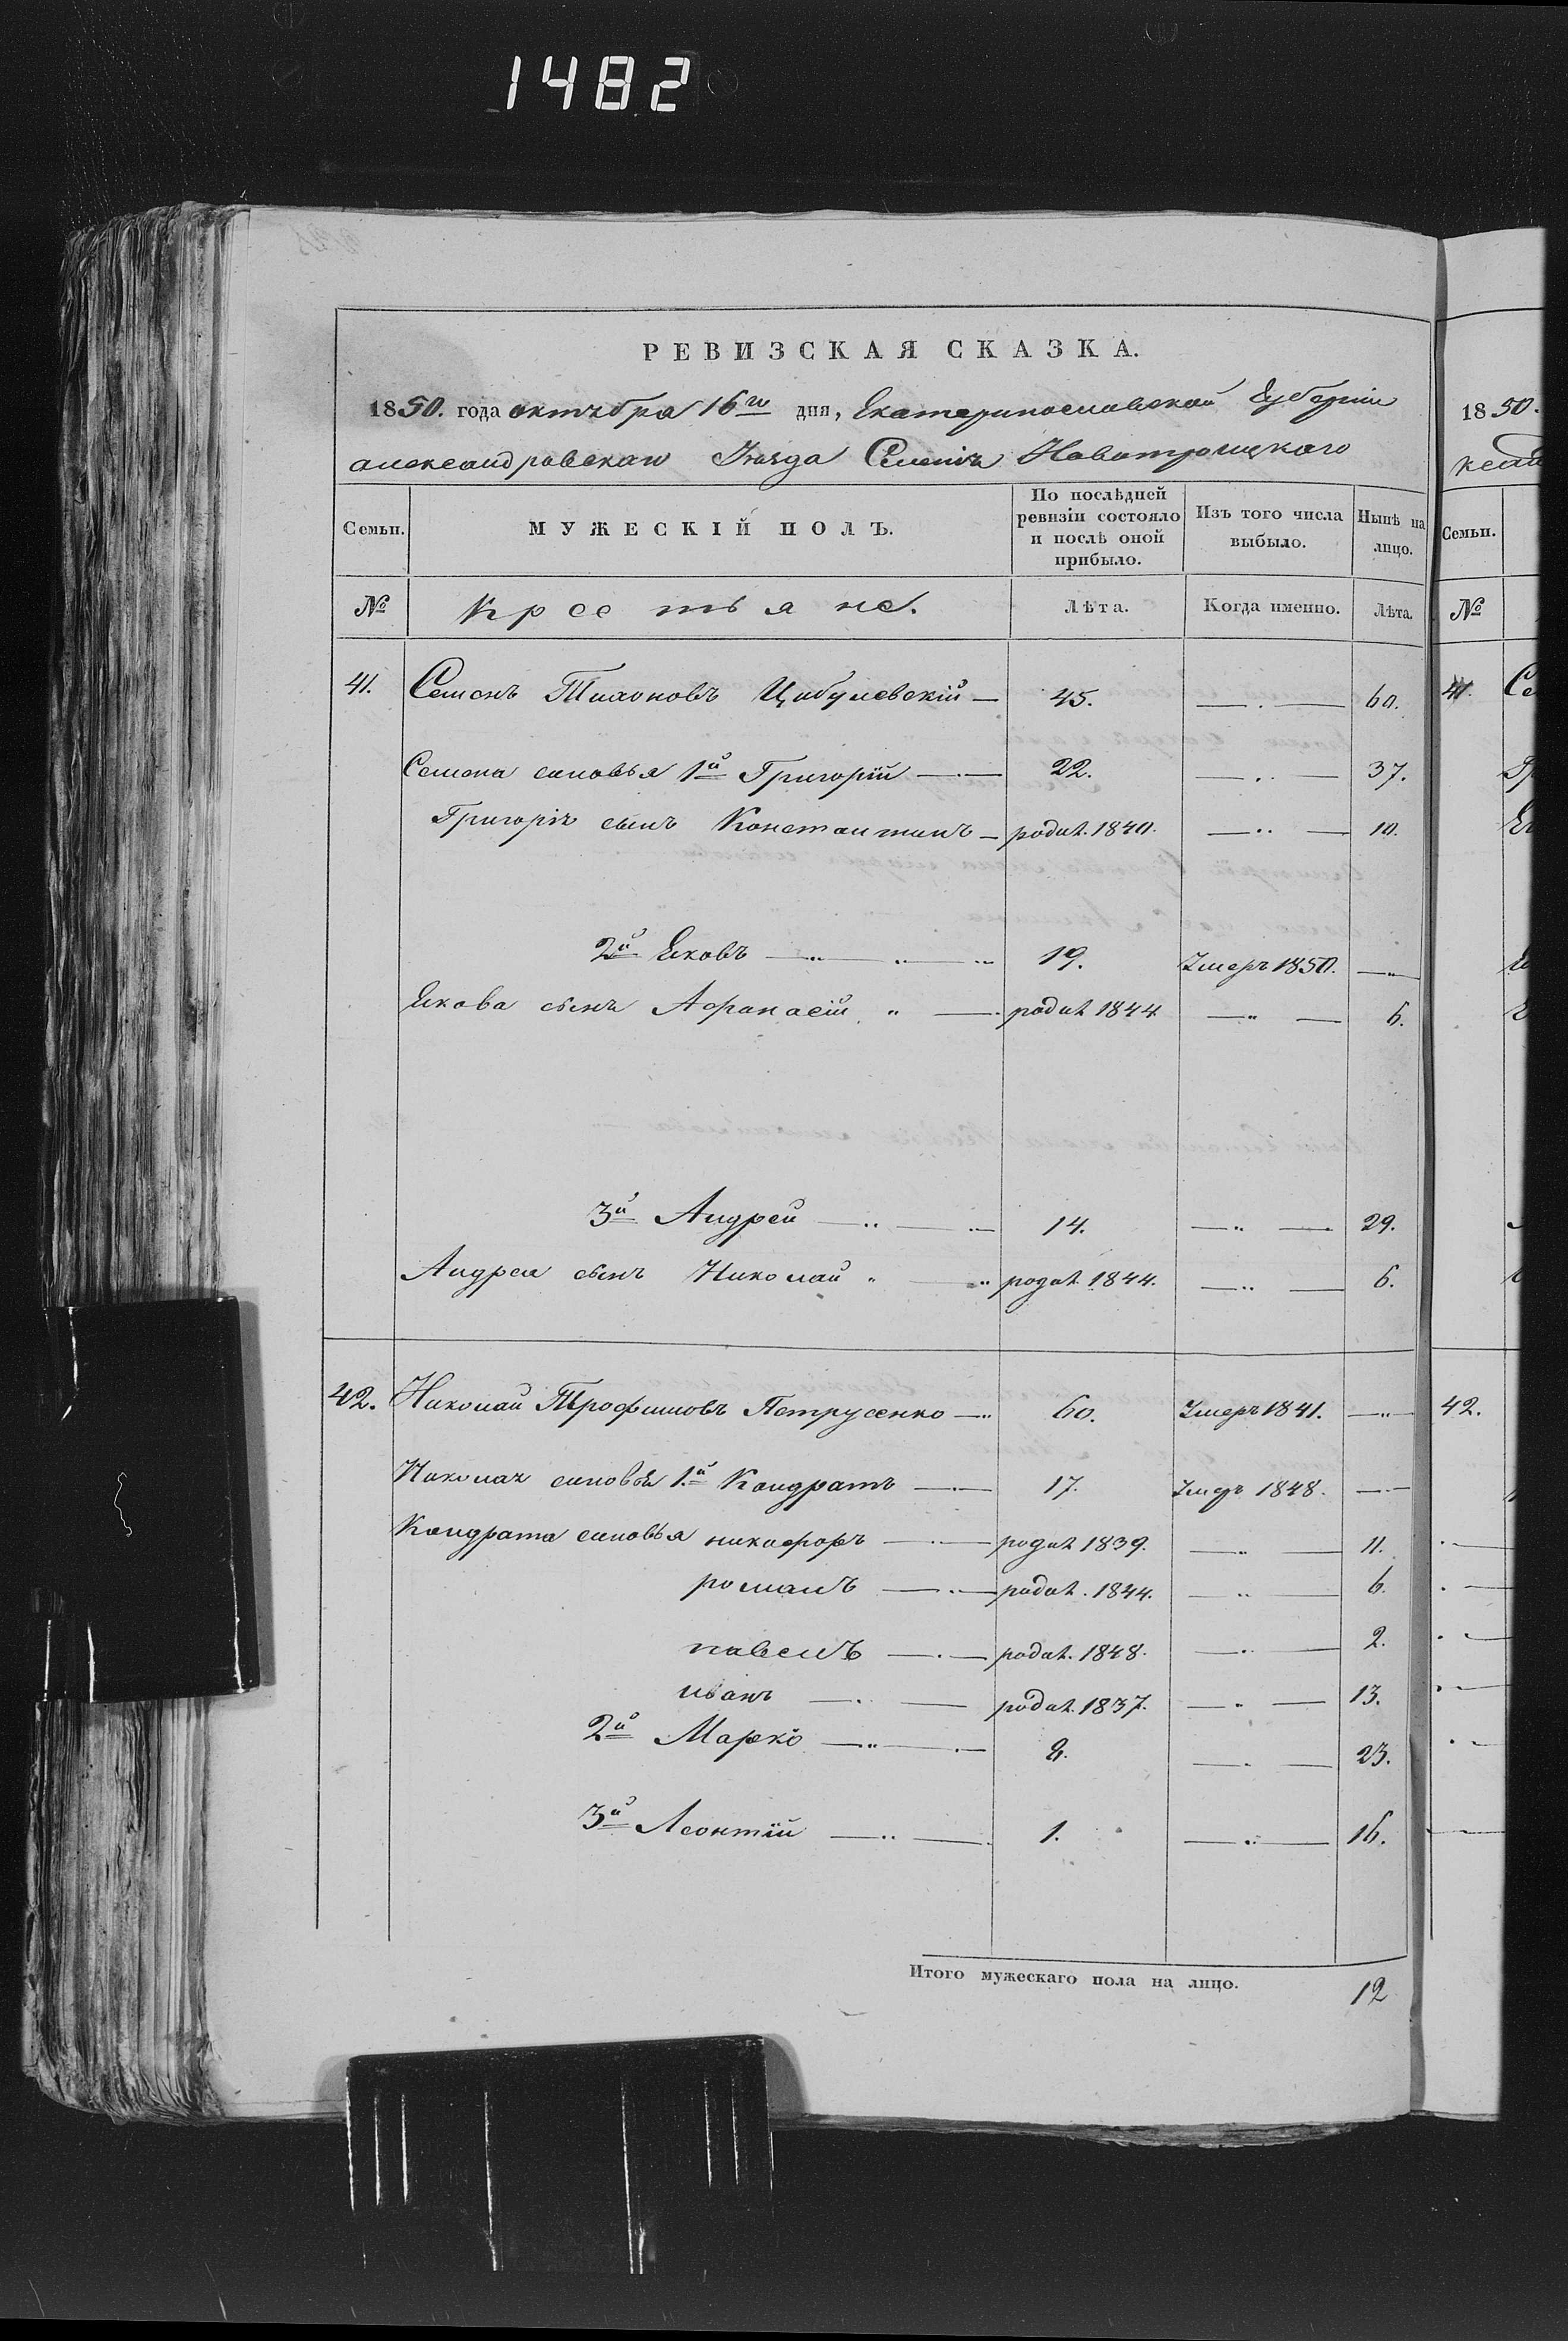 1482
РЕВИЗСКАЯ СКАЗКА.
1850. года октября 16го дня, Екатеринославской Губерніи
александровскаго Уѣзда Селенія Новотроицкаго
Семьи. МУЖЕСКІЙ ПОЛЪ. По послѣдней ревизіи состояло и послѣ оной прибыло. Изъ того числа выбыло. Нынѣ на лицо.
№ Крестьяне. Лѣта. Когда именно. Лѣта.
41. Семенъ Тихоновъ Цибулевскій — 45. — . — 60.
Семена сыновья 1й Григорій — 22. — . — 37.
Григорія сынъ Константинъ — родил. 1840. — .. — 10.
2й Яковъ — .. — 19. Умеръ 1850. — .. —
Якова сынъ Афанасій .. — родил 1844 — .. — 6.
3й Андрей — .. — 14. — .. — 29.
Андрея сынъ Николай .. — родил. 1844. — .. — 6.
42. Николай Трофимовъ Петрусенко — 60. Умеръ 1841. — .. —
Николая сыновья 1.й Кондратъ — . — 17. Умеръ 1848. — . —
Кондрата сыновья никифоръ — . — родил 1839. — .. — 11.
романъ — . — родил. 1844. — .. — 6.
павелъ — . — родил. 1848. — .. — 2.
иванъ — . — родил. 1837. — .. — 13.
2й Марко — .. — . — 8. — . — 23.
3й Леонтій — .. — 1. — .. — 16.
Итого мужескаго пола на лицо. 12
1850.
Семьи.
№
41. Се
42.